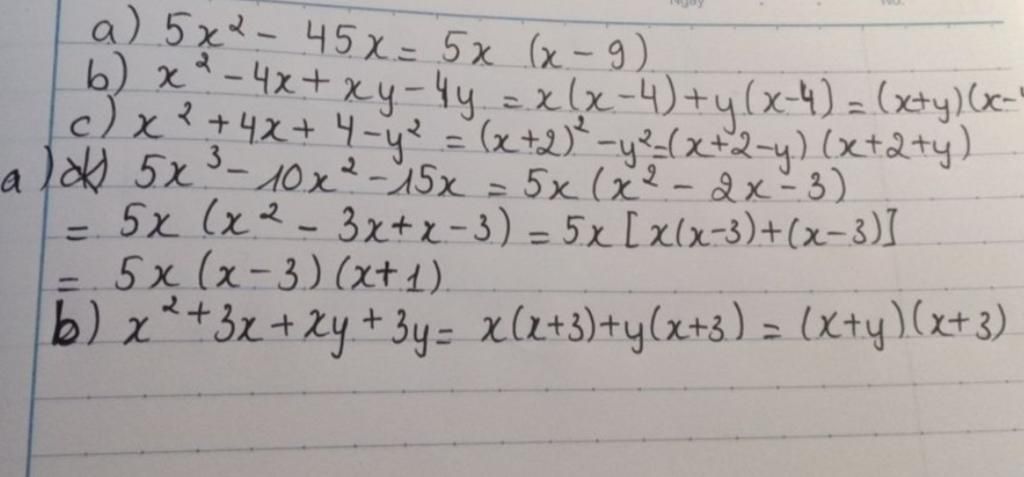 Ngày
No.
a) 5x² - 45x = 5x (x - 9)
b) x² - 4x + xy - 4y = x(x-4) + y(x-4) = (x+y)(x-4
c) x² + 4x + 4 - y² = (x+2)² - y² = (x+2-y) (x+2+y)
a) 5x³ - 10x² - 15x = 5x (x² - 2x - 3)
= 5x (x² - 3x + x - 3) = 5x [x(x-3)+(x-3)]
= 5x (x-3) (x+1)
b) x² + 3x + xy + 3y = x(x+3)+y(x+3) = (x+y)(x+3)